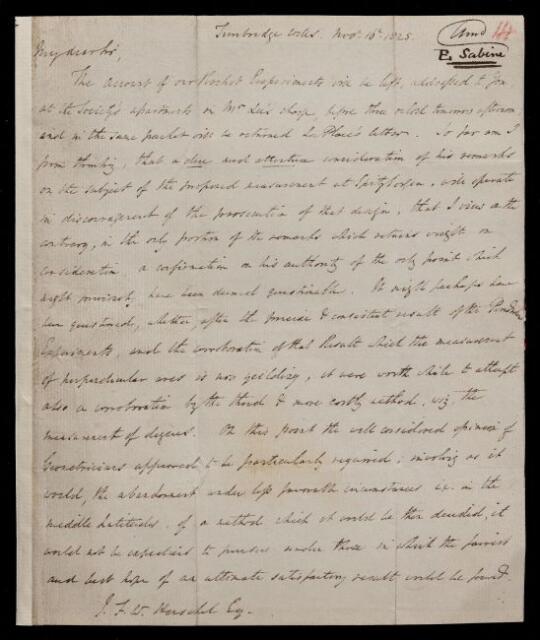 Tunbridge Wells. Novr. 16th. 1825.
E. Sabine
My dear Sir,
The account of our Rocket Experiments will be left, addressed to you
at the Society's apartments in Mr. Lee's charge, before three o'clock tomorrow afternoon
and in the same packet will be returned La Place's letter. So far am I
from thinking, that a close and attentive consideration of his remarks
on the subject of the proposed measurement at Spitzbergen, will operate
in discouragement of the prosecution of that design, that I view on the
contrary, in the only portion of the remarks which retains weight on
consideration a confirmation on his authority of the only point which
might previously have been deemed questionable. It might perhaps have
been questioned, whether, after the precise & consistent result of the Pendulum
Experiments, and the corroboration of that Result which the measurement
of perpendicular arcs is now yielding, it were worth while to attempt
also a corroboration by the third & more costly method, viz. the
measurement of degrees. On this point the well considered opinion of
Geometricians appeared to be particularly required; involving as it
would, the abandonment under less favorable circumstances i.e. in the
middle Latitudes, of a method which it would be then decided, it
would not be expedient to pursue under those in which the fairest
and best hope of an ultimate satisfactory result would be found.
J. F. W. Herschel Esq.